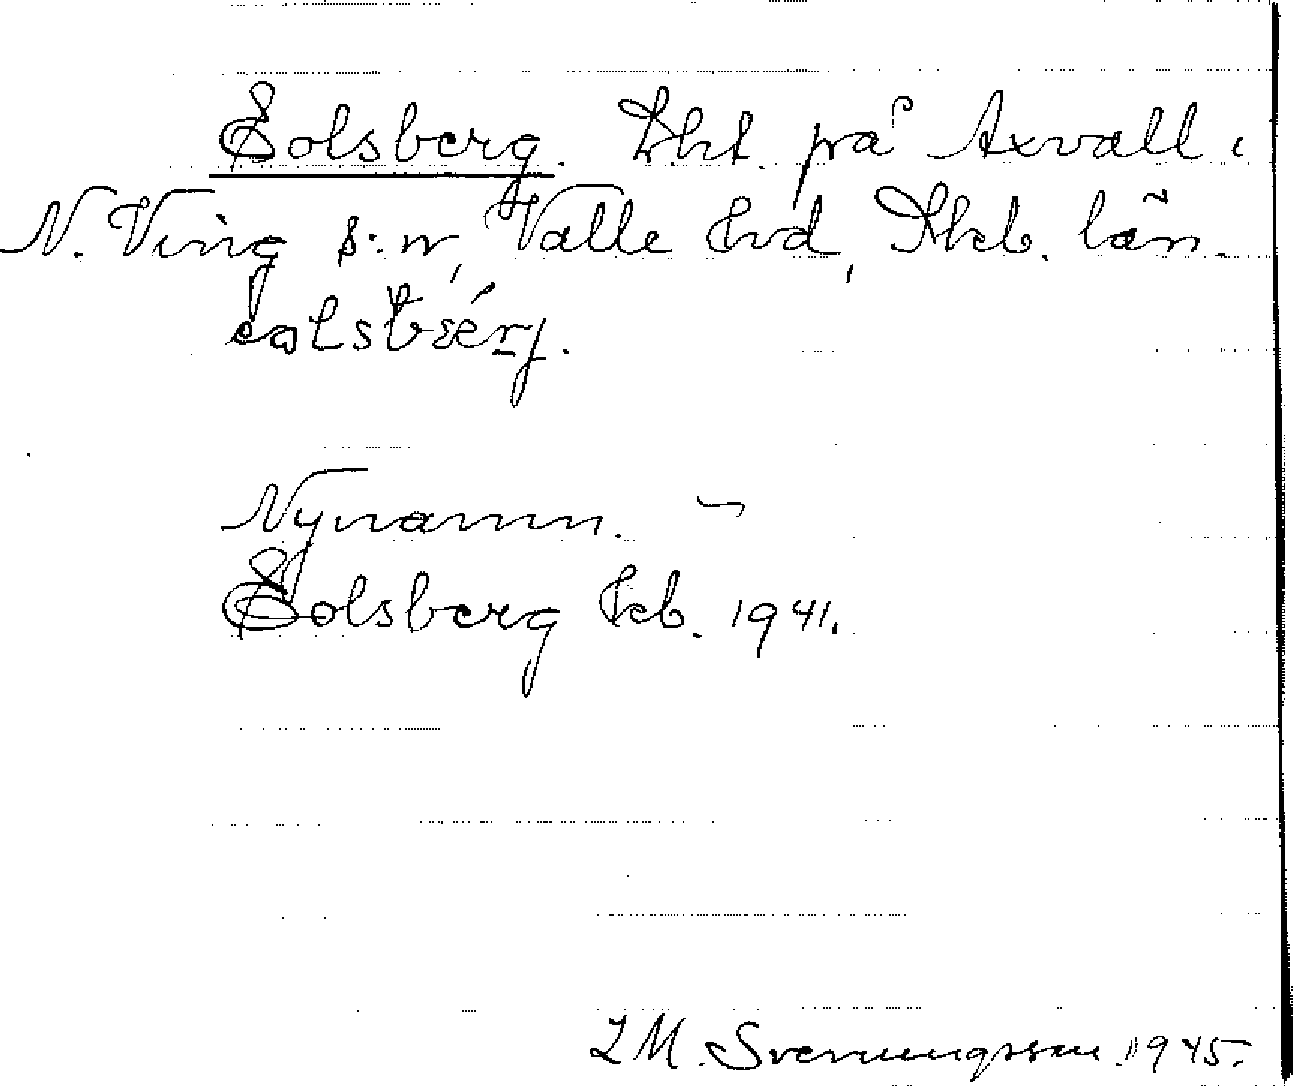 Solsberg. Lht. på Axvall i
N. Ving s:n, Valle hd, Skb. län.
Nynamn.
Solsberg Ekb. 1941.
Svenungsson 1945.